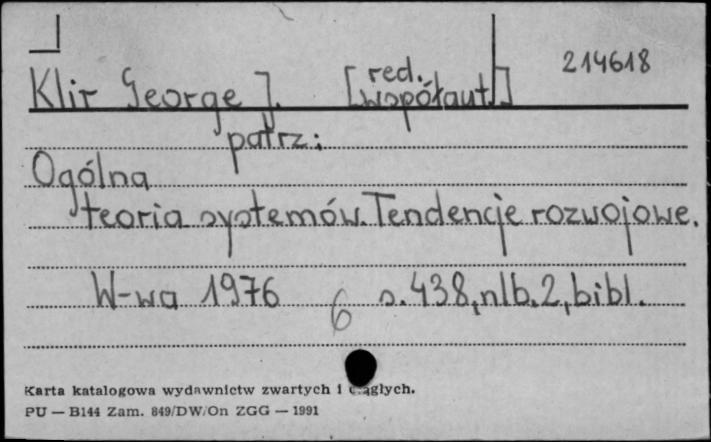 214618
Klir George J. [red. współaut.]
patrz:
Ogólna
teoria systemów. Tendencje rozwojowe.
W-wa 1976 6 s. 438, nlb. 2, bibl.
Karta katalogowa wydawnictw zwartych i ciągłych.
PU — B144 Zam. 849/DW/On ZGG — 1991